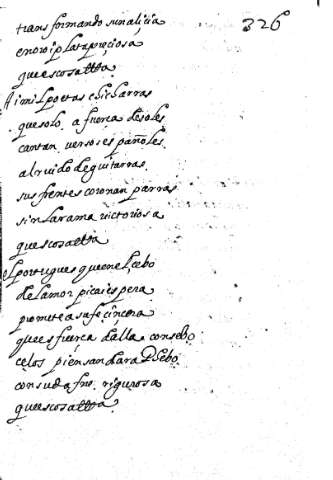 326
transformando su nalicia
en oro i plata preçiosa
que es cosa alta
Ai mil poetas chicharras
que solo a fuerça de soles
cantan versos españoles
al ruido de guitarras
sus frentes coronan parras
sin la rama victoriosa
que es cosa alta
el portugues que en el cebo
del amor pica i espera
promete a sa fe cincera
que es fuerça dalla con sebo
celos piensan dar a Phebo
con su rigurosa
que es cosa alta